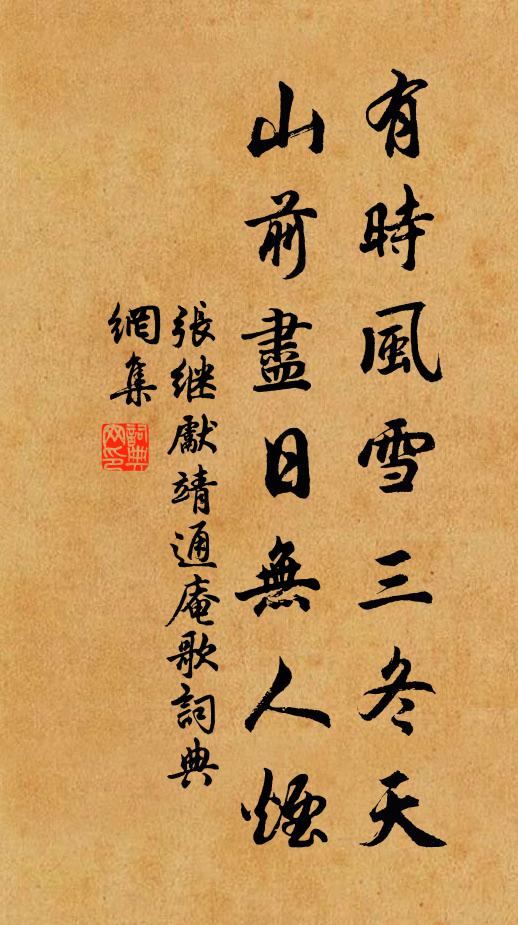 有時風雪三冬天
山前盡日無人煙
張继獻靖通庵歌詞典
網集
詞典
网印